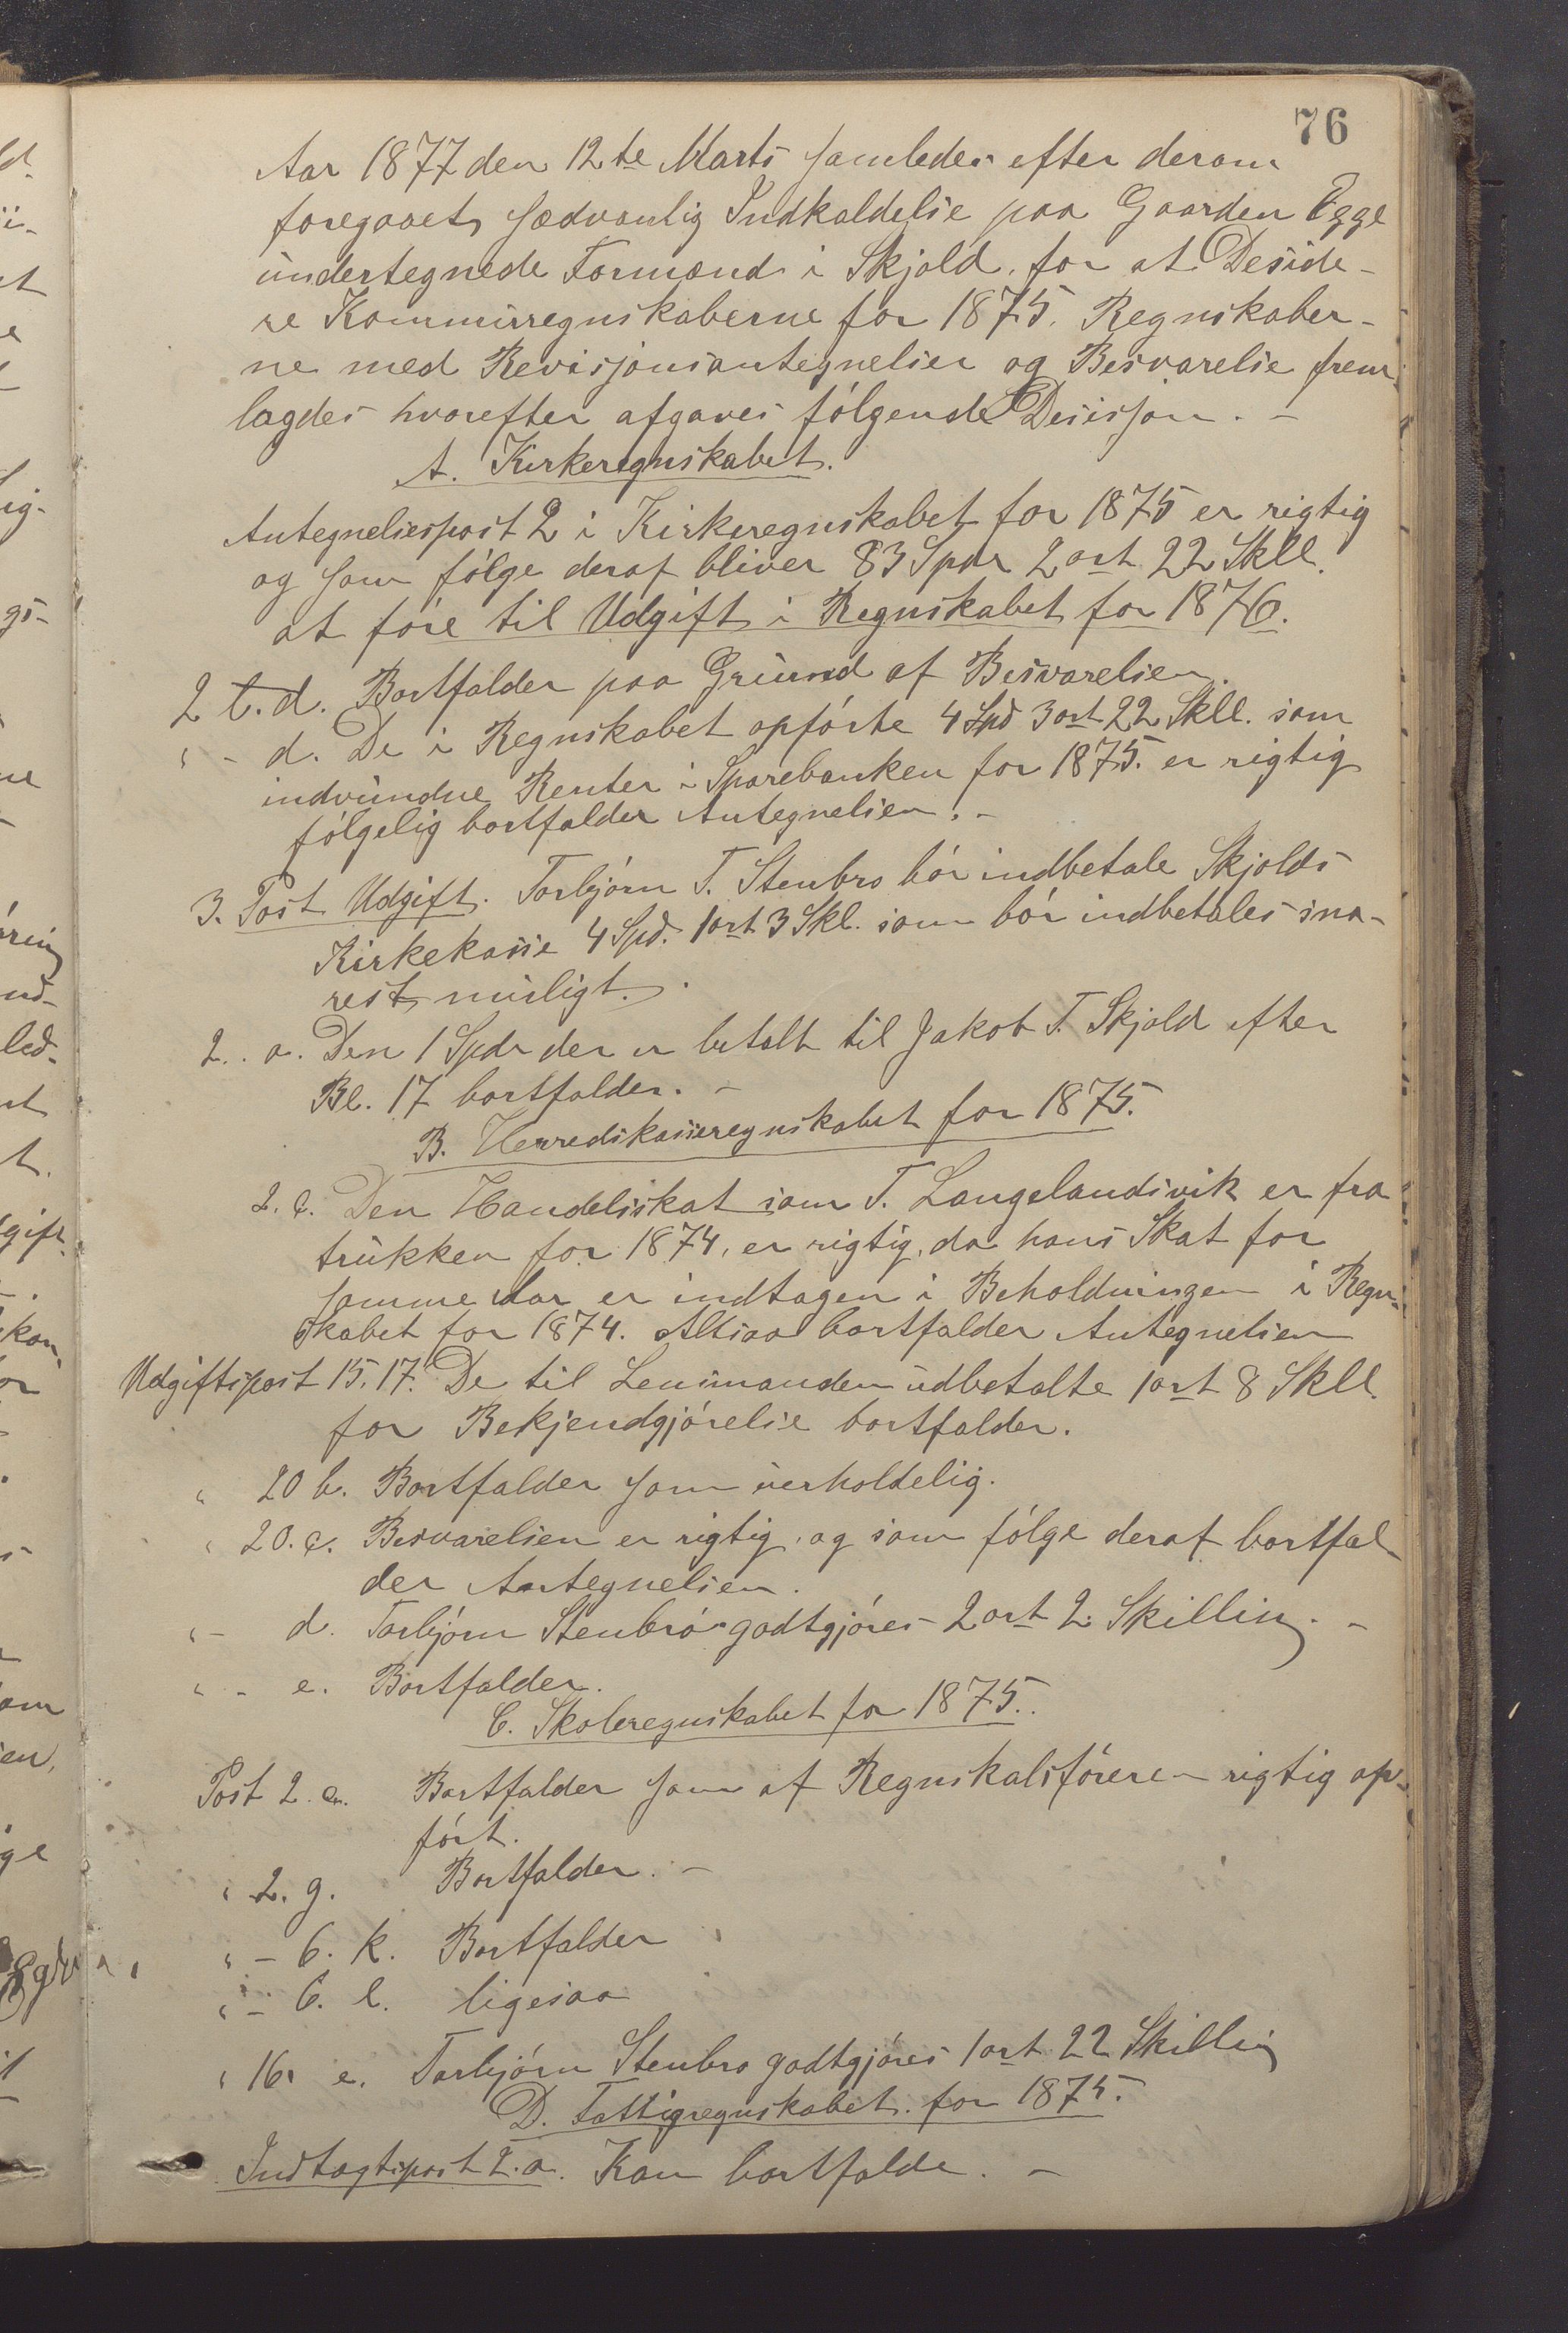 76
Aar 1877 den 12te Marts samledes efter derom
foregaaet sædvanlig Indkaldelse paa Gaarden Egge
undertegnede Formænd i Skjold, for at Deside-
re Kommuneregnskaberne for 1875. Regnskaber-
ne med Revisjonsantegnelser og Besvarelse frem-
lagdes hvorefter afgaves følgende Desisjon. -
A. Kirkeregnskabet.
Antegnelsespost 2 i Kirkeregnskabet for 1875 er rigtig
og som følge deraf bliver 83 Spdr 2 ort 22 Skll.
at føre til Udgift i Regnskabet for 1876.
2 t. d. Bortfalder paa Grund af Besvarelsen.
" - d. De i Regnskabet opførte 4 Spd 3 ort 22 Skll. som
indvundne Renter i Sparebanken for 1875. er rigtig
følgelig bortfalder Antegnelsen. -
3. Post Udgift. Torbjørn T. Stenbro bør indbetale Skjolds
Kirkekasse 4 Spd. 1 ort 3 Skl. som bør indbetales sna-
rest muligt.
2. . a. Den 1 Spdr der er betalt til Jakob T. Skjold efter
Bl. 17 bortfalder. -
B. Herredskasseregnskabet for 1875.
2. c. Den Handelsskat som T. Langelandsvik er fra
trukken for 1874, er rigtig, da hans Skat for
samme Aar er indtagen i Beholdningen i Regn-
skabet for 1874. Altsaa bortfalder Antegnelsen
Udgiftspost 15. 17. De til Lensmanden udbetalte 1 ort 8 Skll.
for Bekjendgjørelse bortfalder.
" 20 b. Bortfalder som uerholdelig.
" 20. c. Besvarelsen er rigtig, og som følge deraf bortfal-
der Antegnelsen.
" - d. Torbjørn Stenbro godtgjøres 2 ort 2 Skilling. -
" - e. Bortfalder.
C. Skoleregnskabet for 1875.
Post 2. a. Bortfalder som af Regnskabsføreren rigtig op-
ført.
" 2. g. Bortfalder. -
" - 6. k. Bortfalder
" - 6. l. ligesaa
" 16. e. Torbjørn Stenbro godtgjøres 1 ort 22 Skilling
D. Fattigregnskabet for 1875.
Indtægtspost 2. a. Kan bortfalde. -